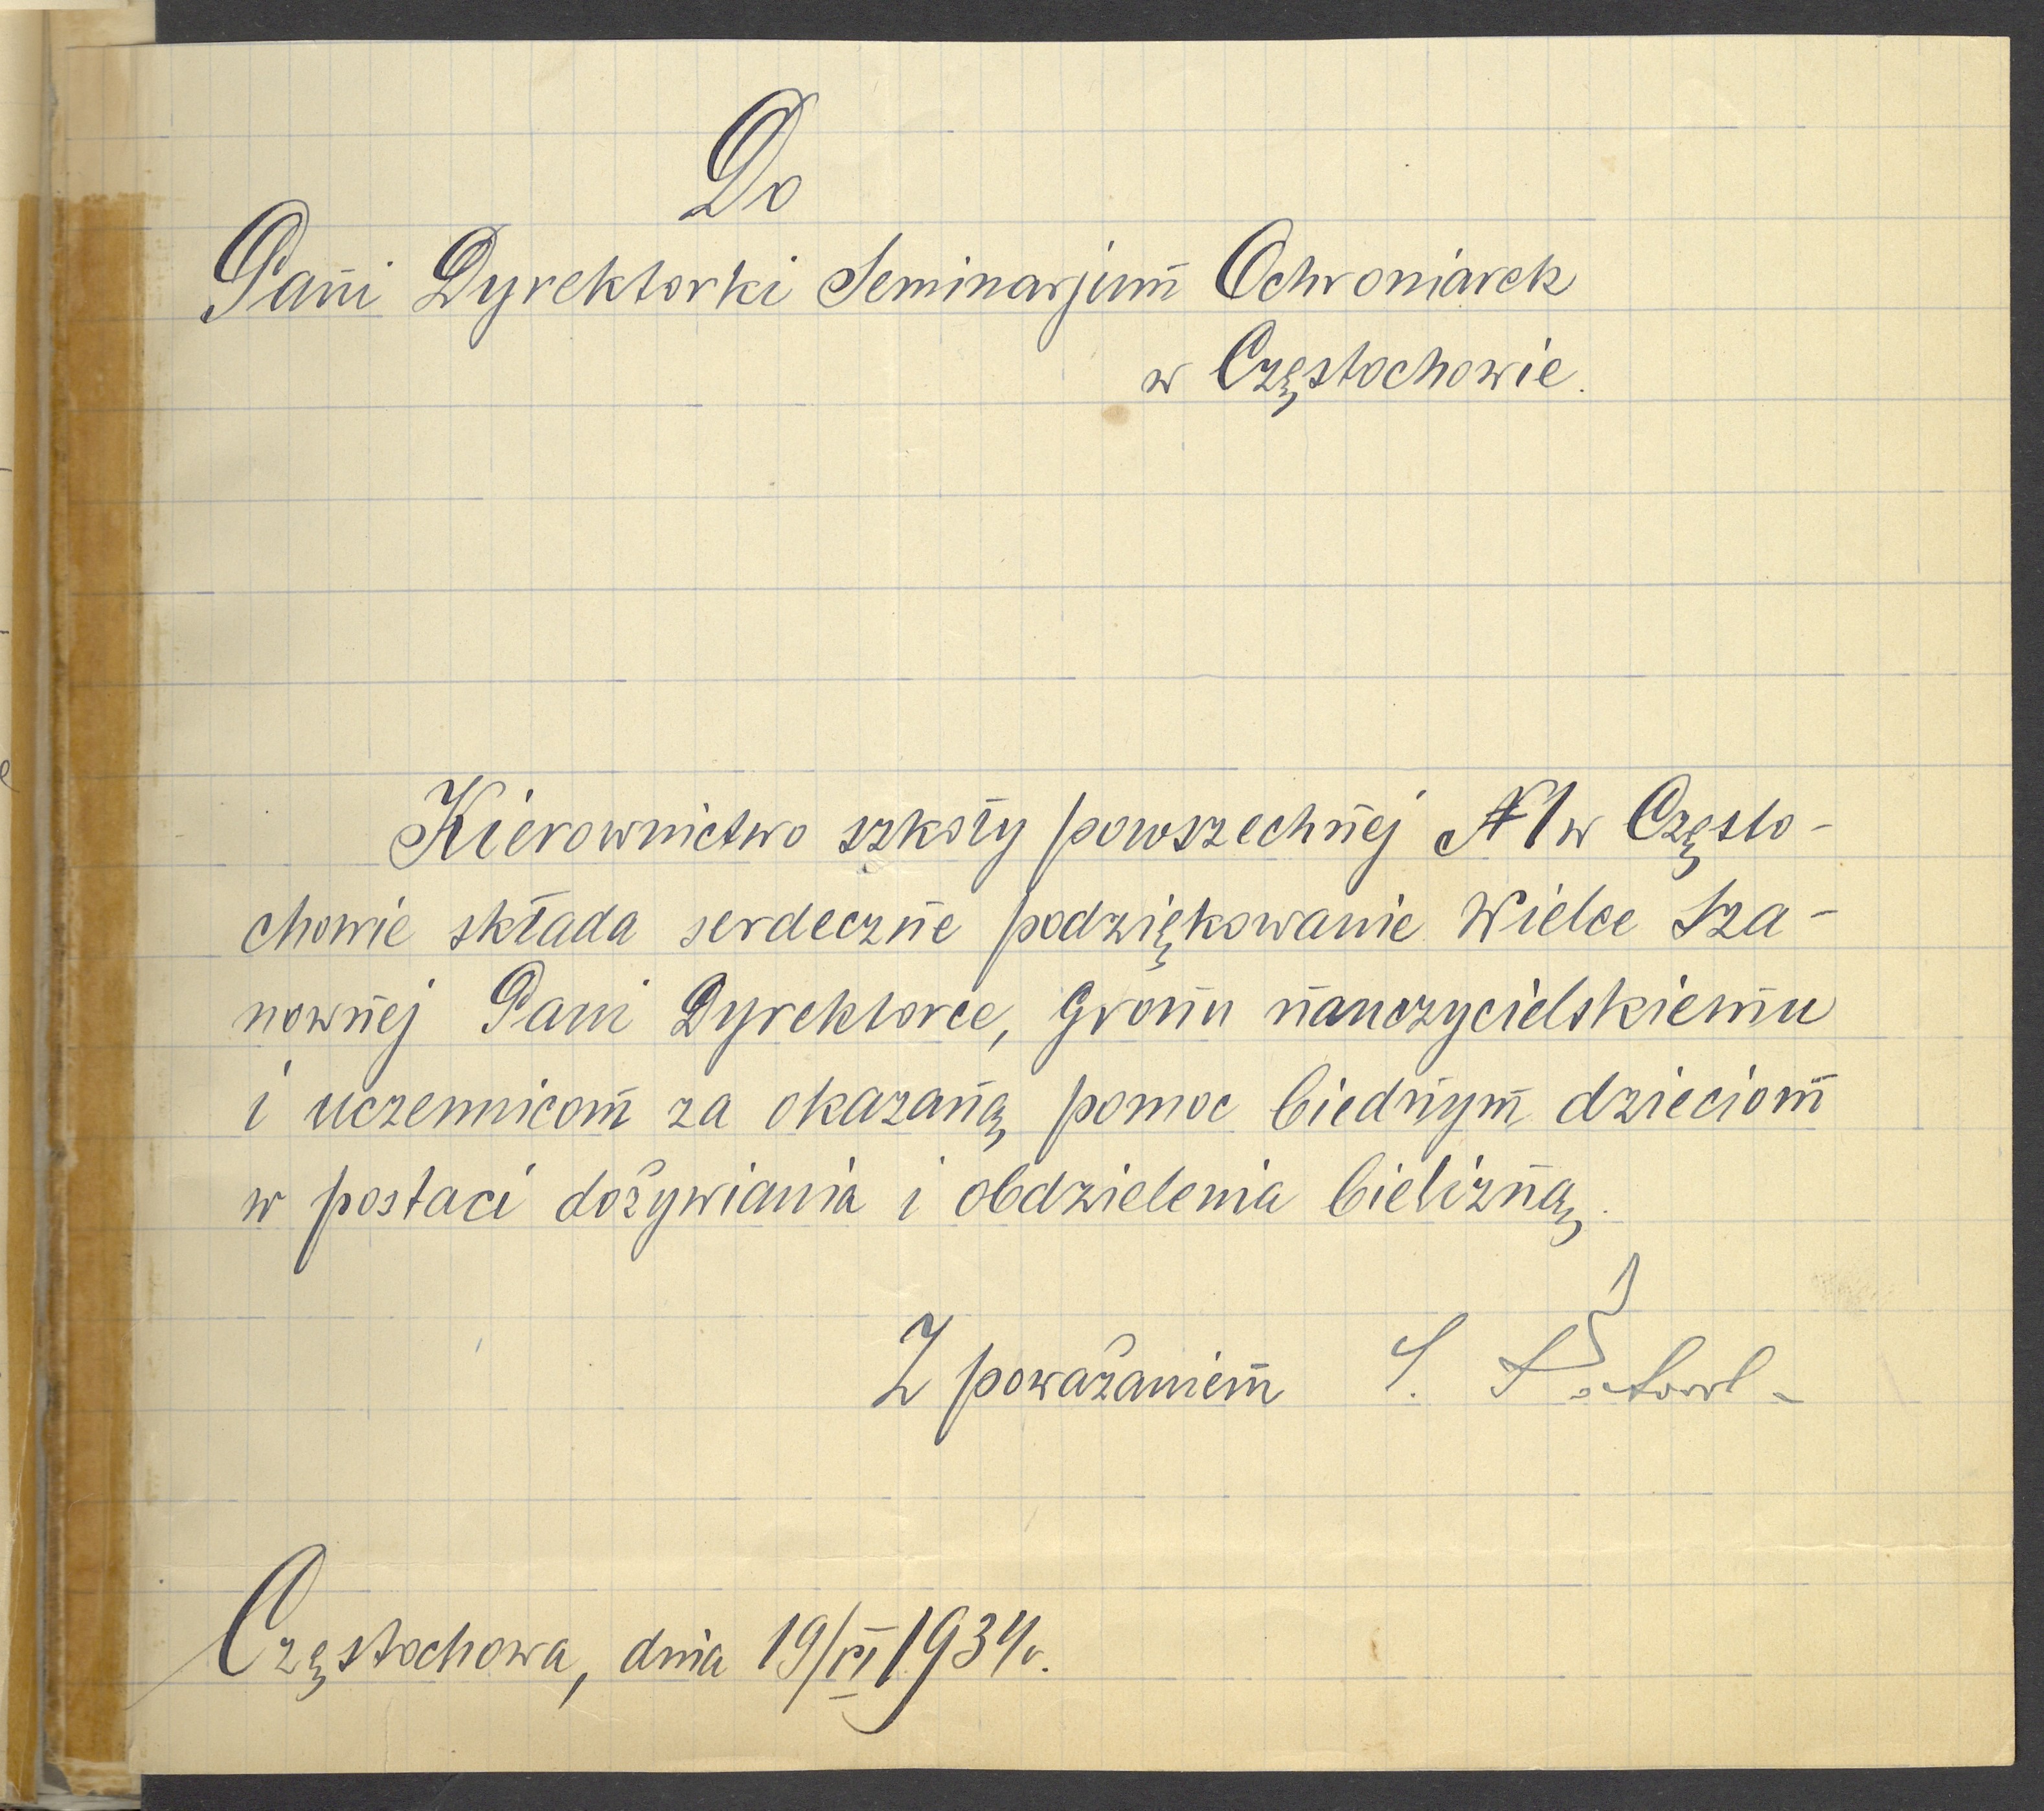 Do
Pani Dyrektorki Seminarjum Ochroniarek
w Częstochowie.
Kierownictwo szkoły powszechnej N 1 w Często-
chowie składa serdeczne podziękowanie Wielce Sza-
nownej Pani Dyrektorce, Gronu nauczycielskiemu
i uczennicom za okazaną pomoc biednym dzieciom
w postaci dożywiania i obdzielenia bielizną.
Z poważaniem S.
Częstochowa, dnia 19/VI 1934r.